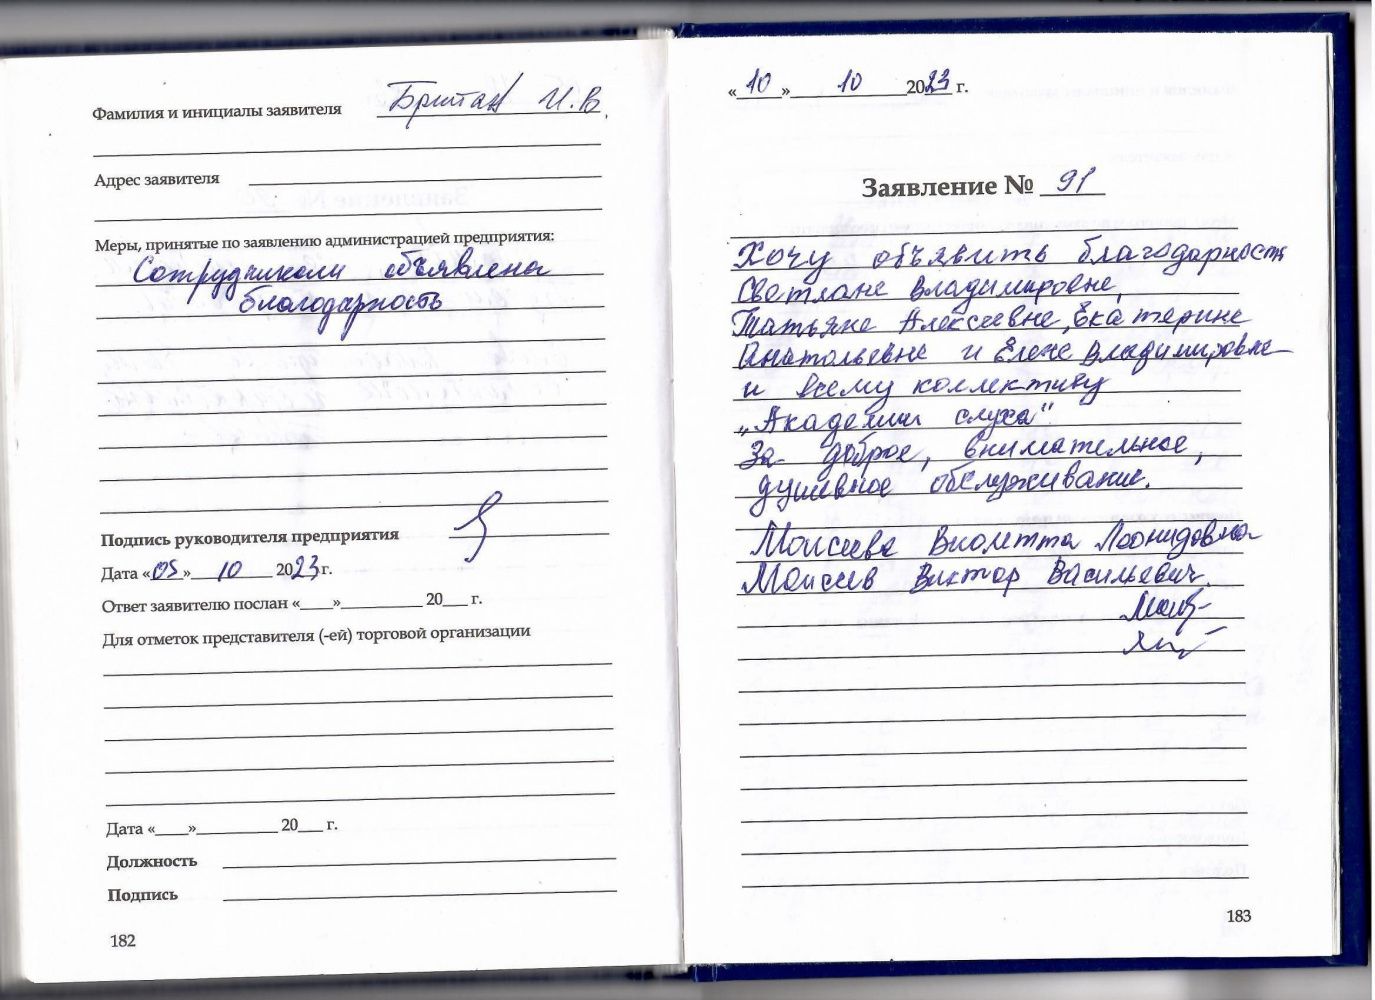 Фамилия и инициалы заявителя Британ И.В.
Адрес заявителя
Меры, принятые по заявлению администрацией предприятия:
Сотрудникам объявлена
благодарность
Подпись руководителя предприятия
Дата «05» 10 2023 г.
Ответ заявителю послан «___»__________ 20___ г.
Для отметок представителя (-ей) торговой организации
Дата «____»__________ 20___ г.
Должность
Подпись
182
«10» 10 2023 г.
Заявление № 91
Хочу объявить благодарность
Светлане Владимировне,
Татьяне Алексеевне, Екатерине
Анатольевне и Елене Владимировне
и всему коллективу
„Академии слуха"
За доброе, внимательное,
душевное обслуживание.
Моисеева Виолетта Леонидовна
Моисеев Виктор Васильевич.
183